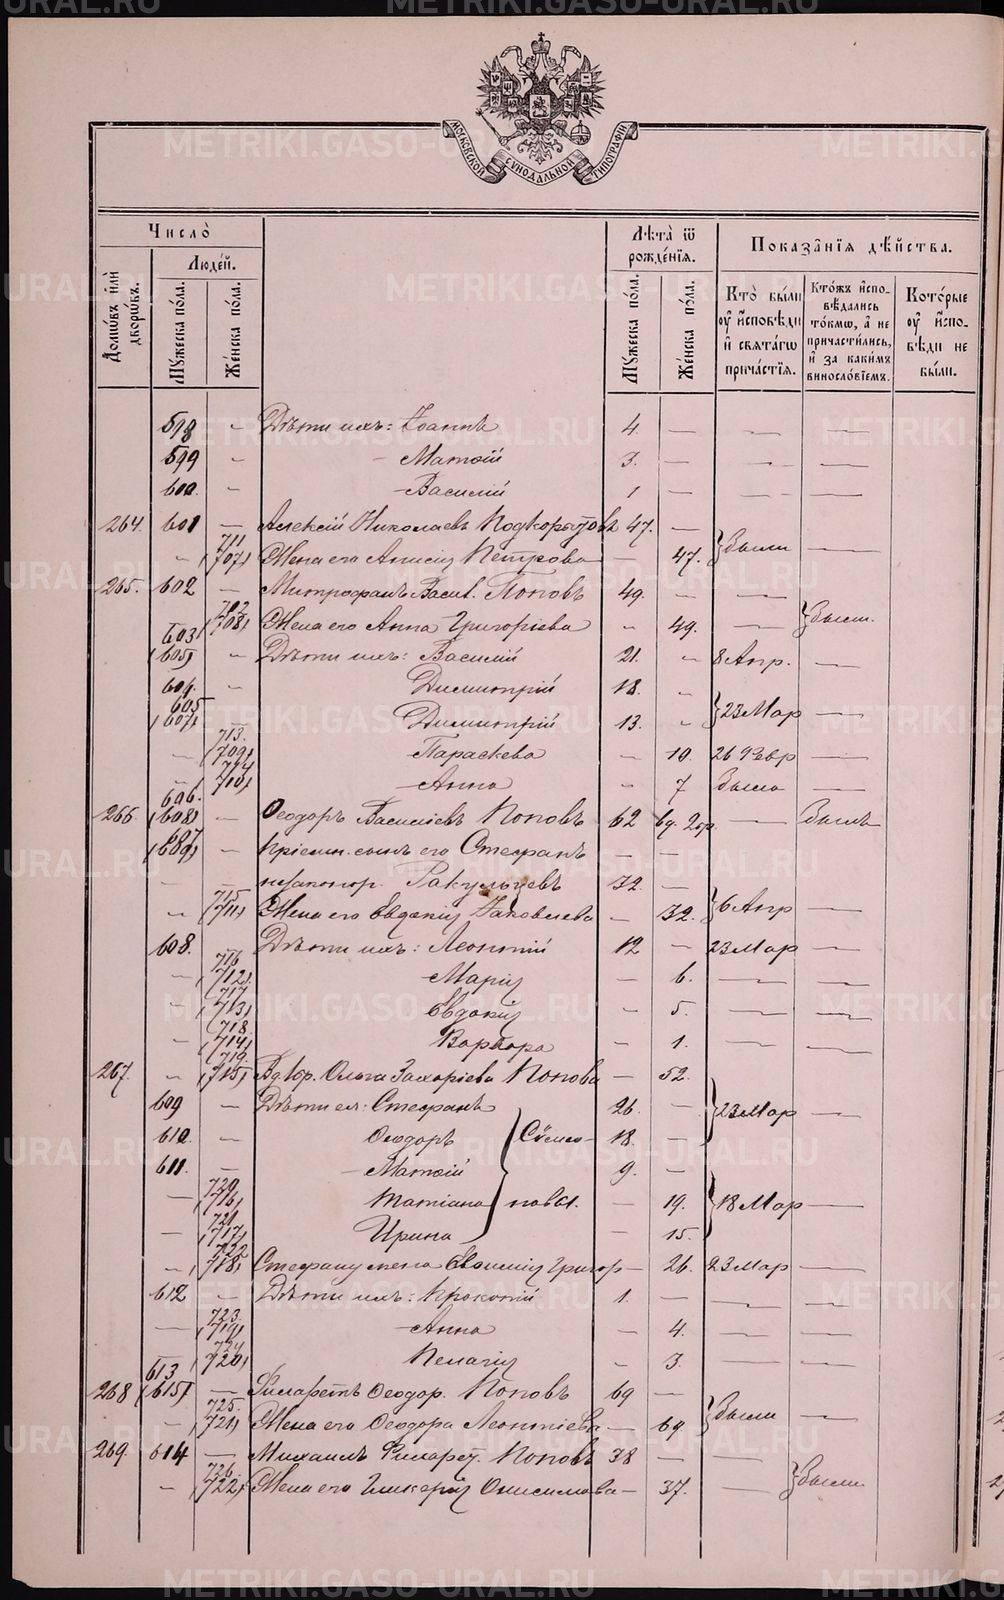 МОСКОВСКОЙ СѴНОДАЛЬНОЙ ТИПОГРАФІИ
Число̀
Людей.
Домѡвъ илѝ дворѡвъ.
Мꙋжеска по́ла.
Же́нска по́ла.
Лѣта̀ ѿ рожде́нїѧ.
Мꙋжеска по́ла.
Же́нска по́ла.
Показа̂нїѧ дѣ́йства.
Кто̀ бы́ли ᲂу҆ и҆сповѣди и҆ свѧта́гѡ прича́стїѧ.
Кто́жъ и҆сповѣдались то́кмѡ, а҆ не причасти́лись, и҆ за каки́мъ винослові́емъ.
Кото́рые ᲂу҆ и҆сповѣди не бы́ли.
598 - Дѣти ихъ: Іоаннъ 4. — — —
599 - Матѳій 3. — — —
600. - Василій 1 — — —
264. 601 — Алексій Николаевъ Подкорытовъ 47. —
- 711 (707) Жена его Анисія Петрова — 47. Были —
265. 602 — Митрофанъ Васил. Поповъ 49. - — —
- 712 (708) Жена его Анна Григоріева - 49. — Были.
603 (605) - Дѣти ихъ: Василій 21. - 8 Апр. —
604. - Димитрій 18. -
605 (607) Димитрій 13. - 23 Мар —
- 713. (709) Параскева — 10. 26 Февр —
- 714 (710) Анна - 7 Была —
266. 606. (608) — Ѳеодоръ Василіевъ Поповъ 62 вд. 2 бр. — Былъ
607 (609) - Пріемн. сынъ его Стефанъ — —
— незаконор. Ракульцевъ 32. —
- 715 (711) Жена его Евдокія Іаковлева — 32. 6 Апр —
608. - Дѣти ихъ: Леонтій 12 — 23 Мар —
- 716 (712) Марія - 6. — —
- 717 (713) Евдокія - 5. — —
- 718. (714) Варвара - 1. — —
267. - 719. (715) Вд. 1 бр. Ольга Захаріева Попова — 52.
609 — Дѣти ея: Стефанъ 26. — 23 Мар —
610. — Ѳеодоръ Симео- 18. —
611. — Матѳій 9. —
— 720 (716) Татіана новы. — 19. 18 Мар —
— 721 (717) Ирина — 15.
- 722 (718) Стефану жена Евѳимія Григор — 26. 23 Мар —
612 - Дѣти ихъ: Прокопій 1. — — —
— 723. (719) Анна — 4. — —
— 724 (720) Пелагія - 3. — —
268 613 (615) — Филаретъ Ѳеодор. Поповъ 69 —
- 725. (721) Жена его Ѳеодора Леонтіева — 69 Были —
269. 614 — Михаилъ Филарет. Поповъ 38 — —
- 726. (722) Жена его Гликерія Онисимова — 37. — Были
METRIKI.GASO-URAL.RU